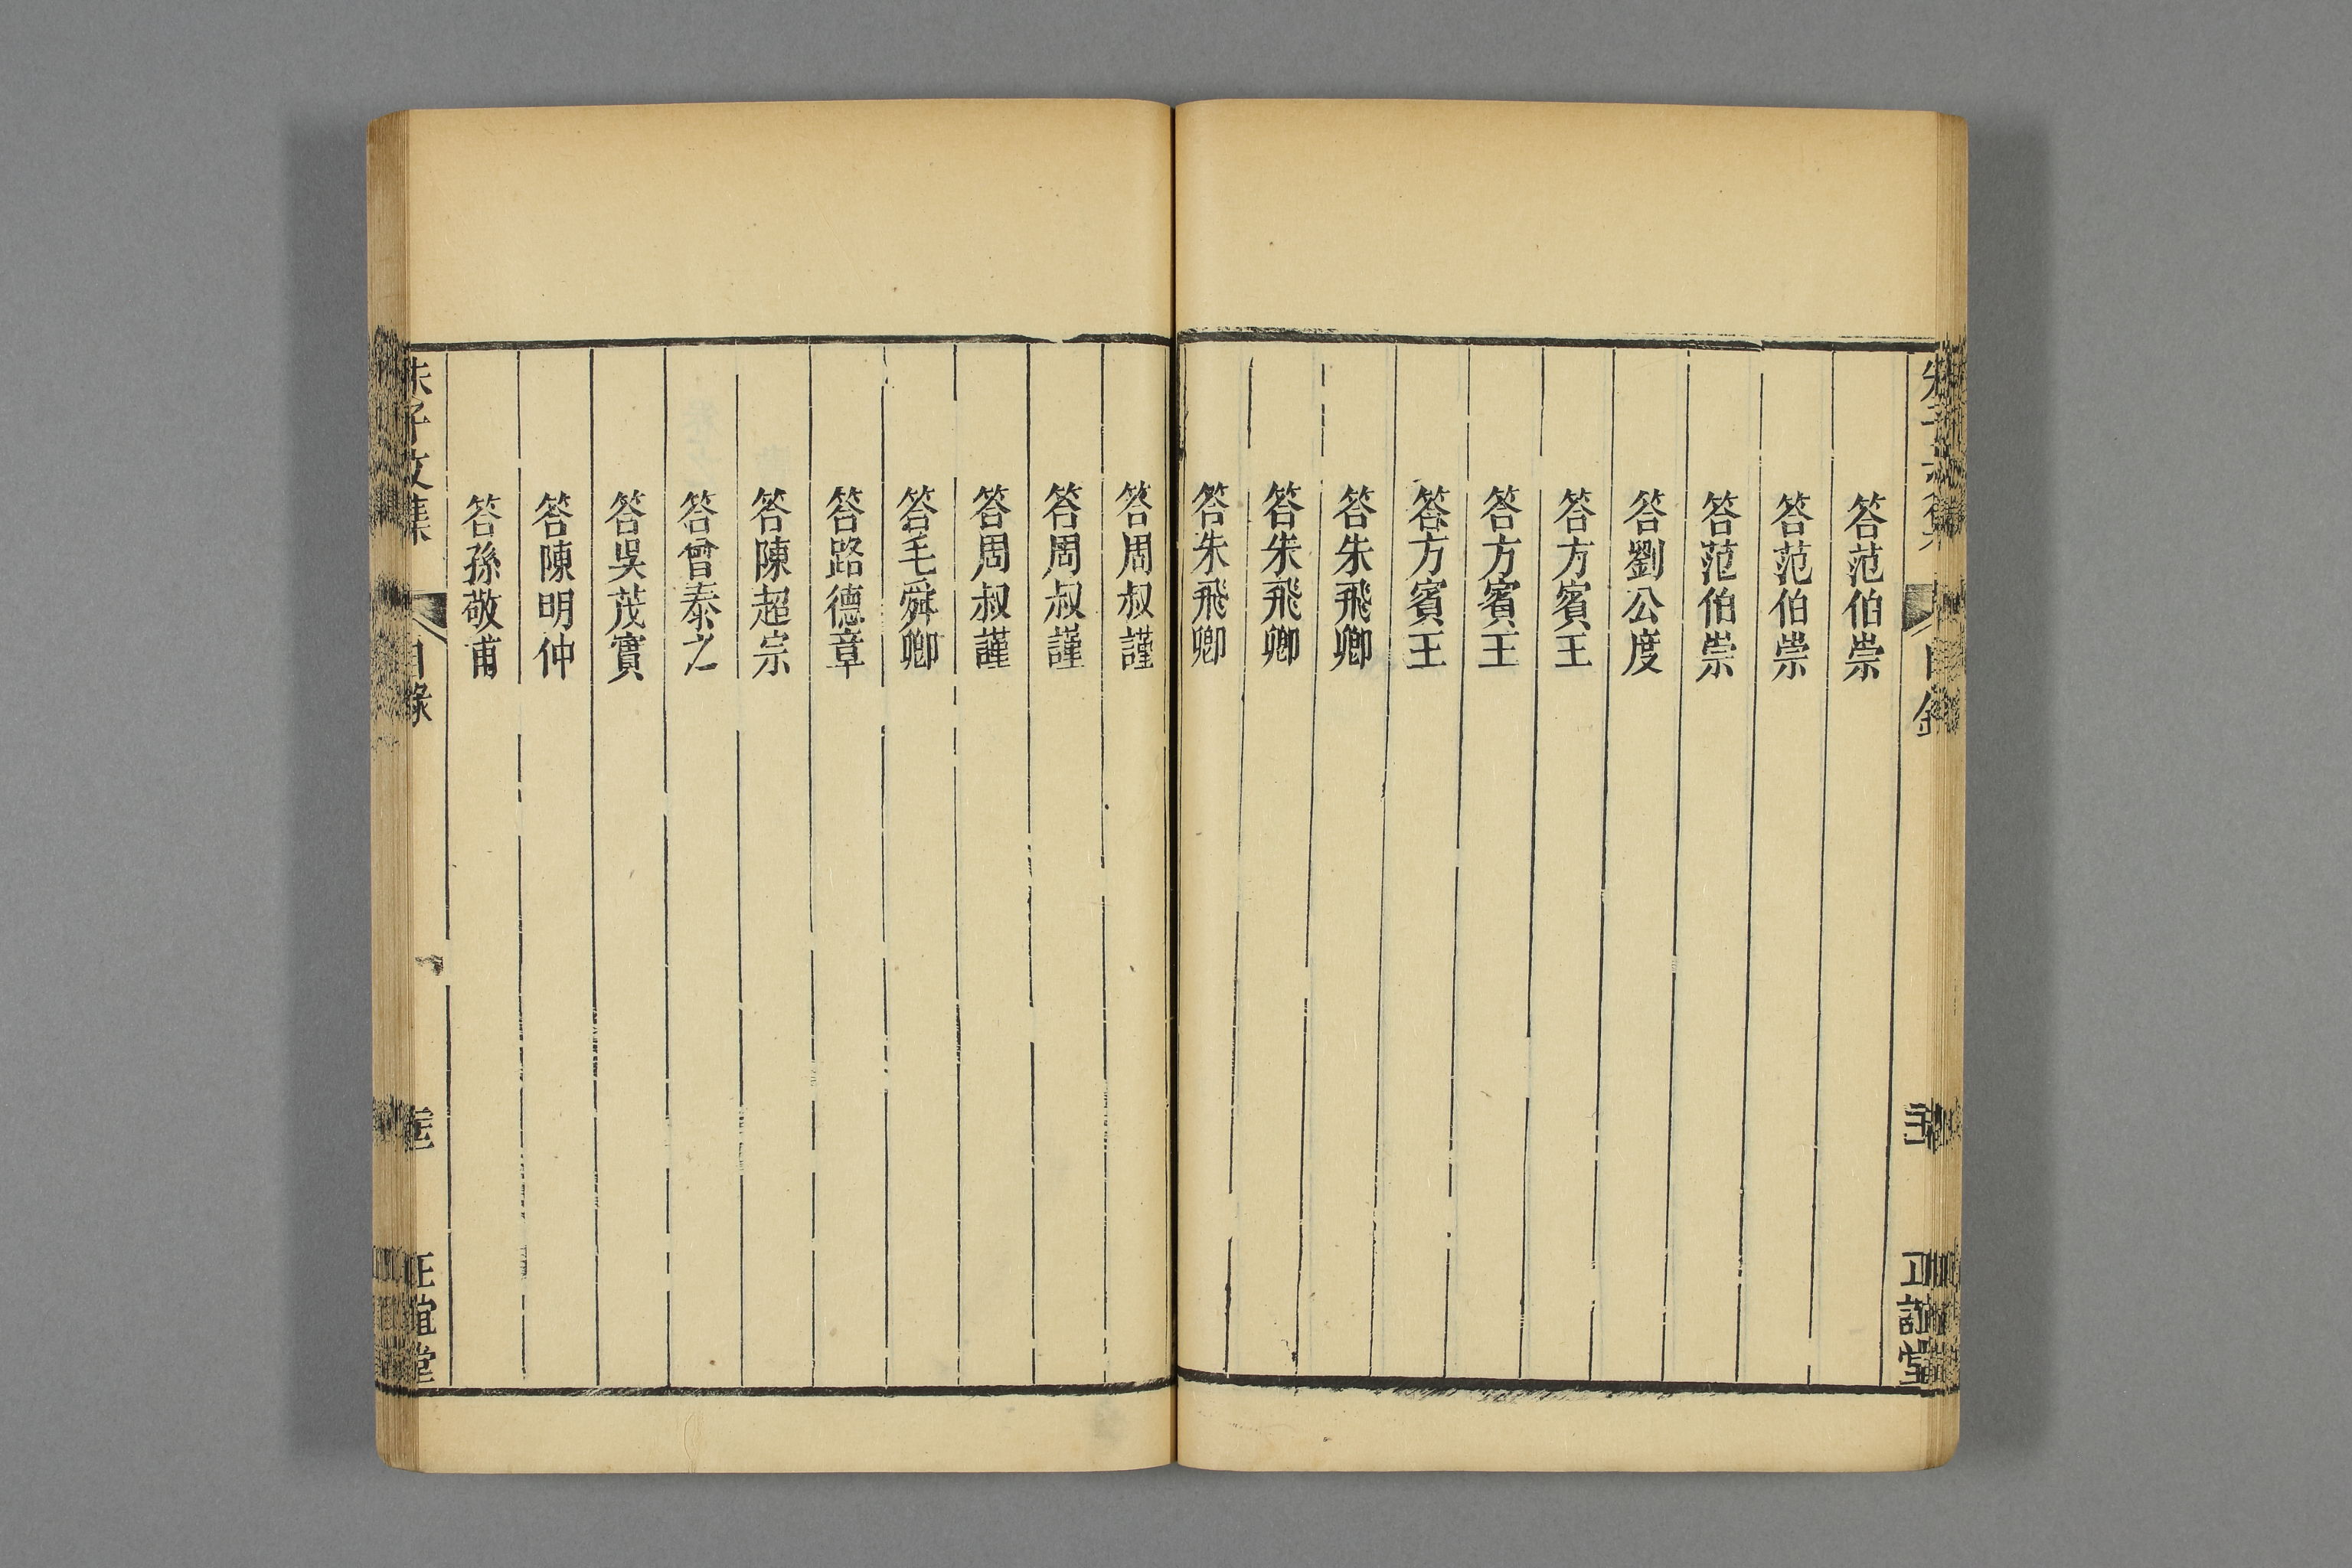 答范伯崇
答范伯崇
答范伯崇
答劉公度
答方賓王
答方賓王
答方賓王
答朱飛卿
答朱飛卿
答朱飛卿
答周叔謹
答周叔謹
答周叔謹
答毛舜卿
答路德章
答陳超宗
答曾泰之
答吳茂實
答陳明仲
答孫敬甫
朱子文集
目錄
正誼堂